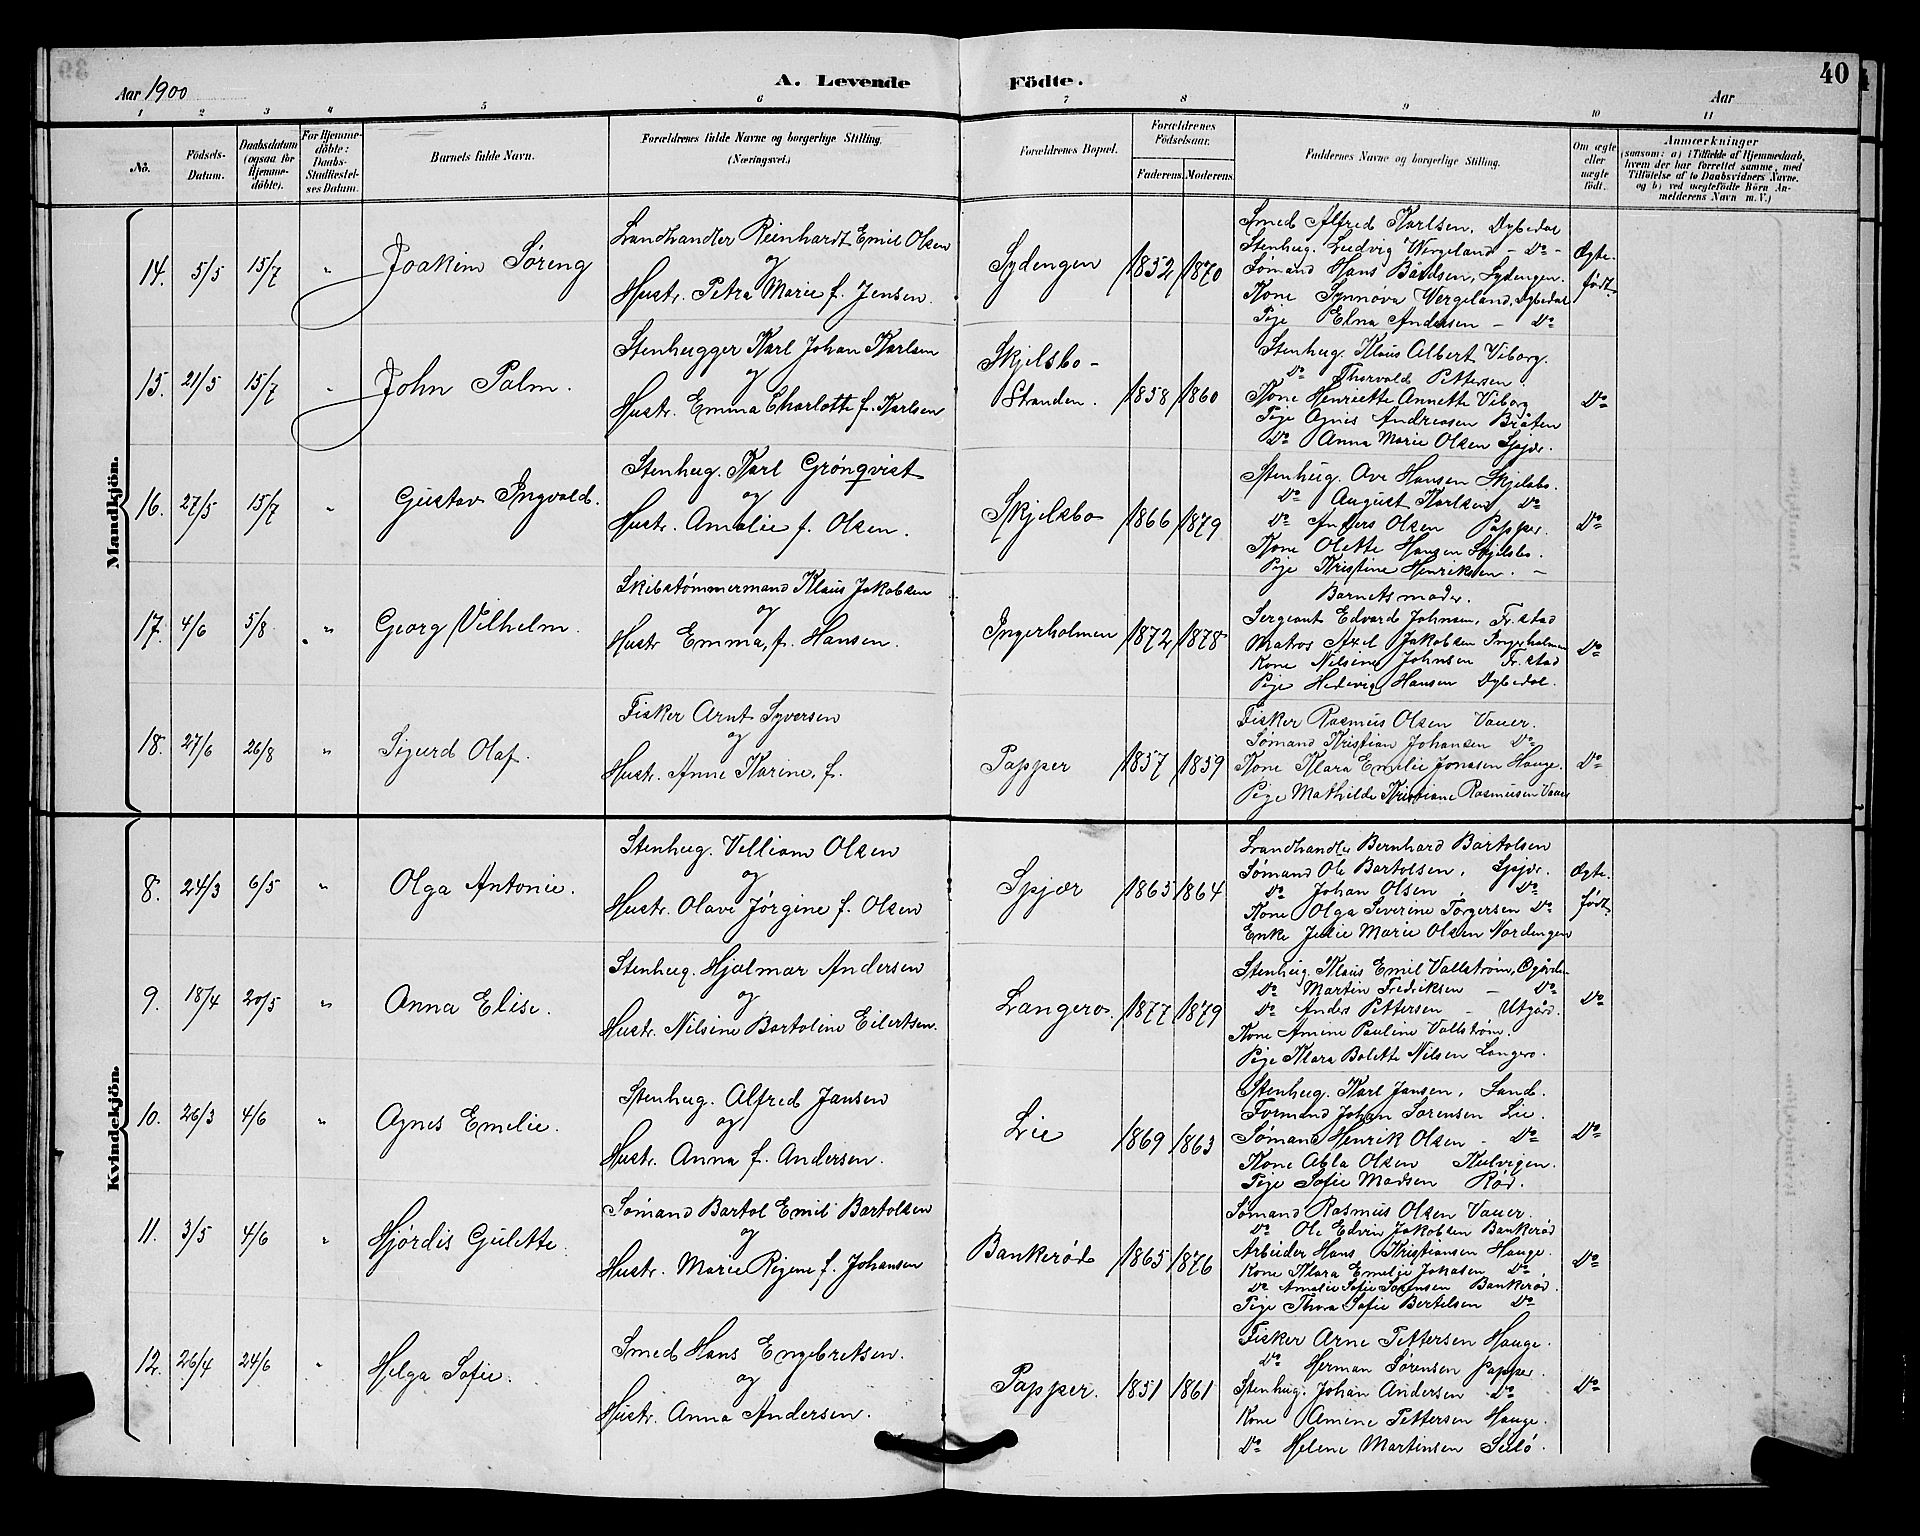 Aar 1900
A. Levende Födte.
Aar
40
1 2 3 4 5 6 7 8 9 10 11
No.
Födsels-Datum.
Daabsdatum (ogsaa for Hjemmedöbte).
For Hjemmedöbte: Daabs-Stadfæstelses Datum.
Barnets fulde Navn.
Forældrenes fulde Navne og borgerlige Stilling. (Næringsvei.)
Forældrenes Bopæl.
Forældrenes Födselsaar.
Faderens. Moderens.
Faddernes Navne og borgerlige Stilling.
Om ægte eller uægte født.
Anmærkninger
(saasom: a) i Tilfælde af Hjemmedaab, hvem der har forrettet samme, med Tilföielse af to Daabsvidners Navne. og b) ved uægtefödte Börn Anmelderens Navn m. V.)
Mandkjön.
14. 5/5 15/7 " Joakim Søreng
Landhandler Reinhardt Emil Olsen
og
Hustr. Petra Marie f. Jensen.
Sydengen 1852 1870
Smed Alfred Karlsen, Dybedal
Stenhug. Ludvig Wergeland - Do -
Sømand Hans Bårdsen, Sydengen.
Kone Synnøva Wergeland, Dybedal
Pige Elna Andersen - Do
Ægte-
født
15. 21/5 15/7 " John Palm.
Stenhugger Karl Johan Karlsen
og
Hustr. Emma Charlotte f. Karlsen
Skjelsbo-
Stranden. 1858 1860
Stenhug. Klaus Albert Viborg.
Do Thorvald Pettersen
Kone Henriette Annette Viborg
Pige Agnes Andreasen Bråten
Do Anna Marie Olsen Spjær.
Do
16. 27/5 15/7 " Gustav Ingvald.
Stenhug. Karl Grönqvist
og
Hustr. Amalie f. Olsen.
Skjelsbo 1866 1879
Stenhug. Ove Hansen Skjelsbo.
Do August Karlsen Do
Do Anders Olsen Papper.
Kone Olette Hansen Skjelsbo.
Pige Kristine Henriksen. -
Do
17. 4/6 5/8 " Georg Vilhelm.
Skibstømmermand Klaus Jakobsen
og
Hustr Emma, f. Hansen.
Ingerholmen 1872 1878
Barnets moder.
Sergeant Edvard Johnsen, Fr.stad
Matros Axel Jakobsen Ingerholmen
Kone Nilsine Johnsen Fr.stad
Pige Hedevig Hansen Dybedal.
Do
18. 27/6 26/8 " Sigurd Olaf.
Fisker Arnt Syversen
og
Hustr. Anne Karine, f.
Papper 1857 1859
Fisker Rasmus Olsen Vauer.
Sømand Kristian Johansen Do
Kone Klara Emilie Jonasen Hauge.
Pige Mathilde Kristiane Rasmusen Vauer
Do
Kvindekjön.
8. 24/3 6/5 " Olga Antonie.
Stenhug. Villiam Olsen
og
Hustr. Olave Jørgine f. Olsen
Spjær 1865 1864
Landhandler Bernhard Bartolsen
Sømand Ole Bartolsen, Spjær.
Do Johan Olsen, Do
Kone Olga Severine Torgersen Do
Enke Julie Marie Olsen Nordengen
Ægte-
født
9. 18/4 20/5 " Anna Elise.
Stenhug. Hjalmar Andersen
og
Hustr. Nilsine Bartoline Eilertsen.
Langerø. 1877 1879
Stenhug. Klaus Emil Vallstrøm,
Do Martin Fredriksen - Do
Do Anders Pettersen - Utgård.
Kone Amine Pauline Vallstrøm.
Pige Klara Bolette Nilsen Langerø.
Do
10. 26/3 4/6 " Agnes Emelie.
Stenhug. Alfred Jansen
og
Hustr. Anna f. Andersen.
Lie 1869 1863
Stenhug. Karl Jansen, Sand.
Formand Johan Sørensen Lie.
Sømand Henrik Olsen - Do
Kone Abla Olsen
Pige Sofie Madsen Rød.
Do
11. 3/5 4/6 " Hjørdis Gulette.
Sømand Bartol Emil Bartolsen
og
Hustr. Marie Regine f. Johansen
Bankerød 1865 1876
Sømand Rasmus Olsen Vauer.
Do Ole Edvin Jakobsen Bankerød
Arbeider Hans Kristiansen Hauge.
Kone Klara Emelie Jonasen Do.
Do Amalie Sofie Sørensen Bankerød.
Pige Thora Sofie Bertelsen Do
Do
12. 26/4 24/6 " Helga Sofie.
Smed Hans Engebretsen.
og
Hustr. Anna Andersen.
Papper. 1851 1861
Fisker Arne Pettersen Hauge.
Do Herman Sørensen Papper.
Stenhug. Johan Andersen Do
Kone Amine Pettersen Hauge.
Do Helene Martinsen
Do